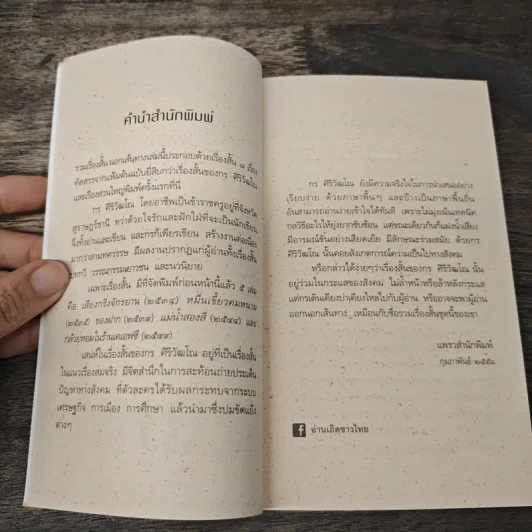 คำนำสำนักพิมพ์
รวมเรื่องสั้น นอกเส้นทางเล่มนี้ประกอบด้วยเรื่องสั้น ๘ เรื่อง
คัดสรรจากแฟ้มต้นฉบับยี่สิบกว่าเรื่องสั้นของกร ศิริวัฒโณ
และเรื่องส่วนใหญ่พิมพ์ครั้งแรกที่นี่
กร ศิริวัฒโณ โดยอาชีพเป็นข้าราชครูอยู่ที่จังหวัด
สุราษฎร์ธานี ทว่าด้วยใจรักและฝักใฝ่ที่จะเป็นนักเขียน
จึงทั้งอ่านและเขียน และกรก็เพียรเขียน สร้างงานต่อเนื่อง
มากว่าสามทศวรรษ มีผลงานปรากฏแก่ผู้อ่านทั้งเรื่องสั้น
วรรณกรรมเยาวชน และนวนิยาย
เฉพาะเรื่องสั้น มีที่จัดพิมพ์ก่อนหน้านี้แล้ว ๕ เล่ม
คือ เสียงกริ่งจักรยาน (๒๕๓๔) หมื่นเขี้ยวคมหนาม
(๒๕๓๕) ของฝาก (๒๕๓๙) แม่น้ำสองสี (๒๕๔๔) และ
กล้วยหอมในร้านเคเอฟซี (๒๕๔๙)
เสน่ห์ในเรื่องสั้นของกร ศิริวัฒโณ อยู่ที่เป็นเรื่องสั้น
ในแนวเรื่องสมจริง มีจิตสำนึกในการสะท้อนถ่ายประเด็น
ปัญหาทางสังคม ที่ตัวละครได้รับผลกระทบจากระบบ
เศรษฐกิจ การเมือง การศึกษา แล้วนำมาซึ่งปมขัดแย้ง
ต่างๆ
กร ศิริวัฒโณ ยังมีความจริงใจในการนำเสนออย่าง
เรียบง่าย ด้วยภาษาพื้นๆ และบ้างเป็นภาษาพื้นถิ่น
อันสามารถอ่านง่ายเข้าใจได้ทันที เพราะไม่มุ่งเน้นเทคนิค
กลวิธีอะไรให้ยุ่งยากซับซ้อน แต่ขณะเดียวกันก็แฝงน้ำเสียง
มีอารมณ์ขันอย่างเสียดเย้ย มีลักษณะร่วมสมัย ด้วยกร
ศิริวัฒโณ นั้นคอยสังเกตการณ์ความเป็นไปทางสังคม
หรือกล่าวได้ง่ายๆว่าเรื่องสั้นของกร ศิริวัฒโณ นั้น
อยู่ร่วมในกระแสของสังคม ไม่ล้ำหน้าหรือล้าหลังกระแส
แต่การเดินเคียงบ่าเคียงไหล่ไปกับผู้อ่าน หรืออาจจะพาผู้อ่าน
ออกนอกเส้นทาง เหมือนกับชื่อรวมเรื่องสั้นชุดนี้ของเขา
แพรวสำนักพิมพ์
กุมภาพันธ์ ๒๕๕๒
อ่านเถิดชาวไทย